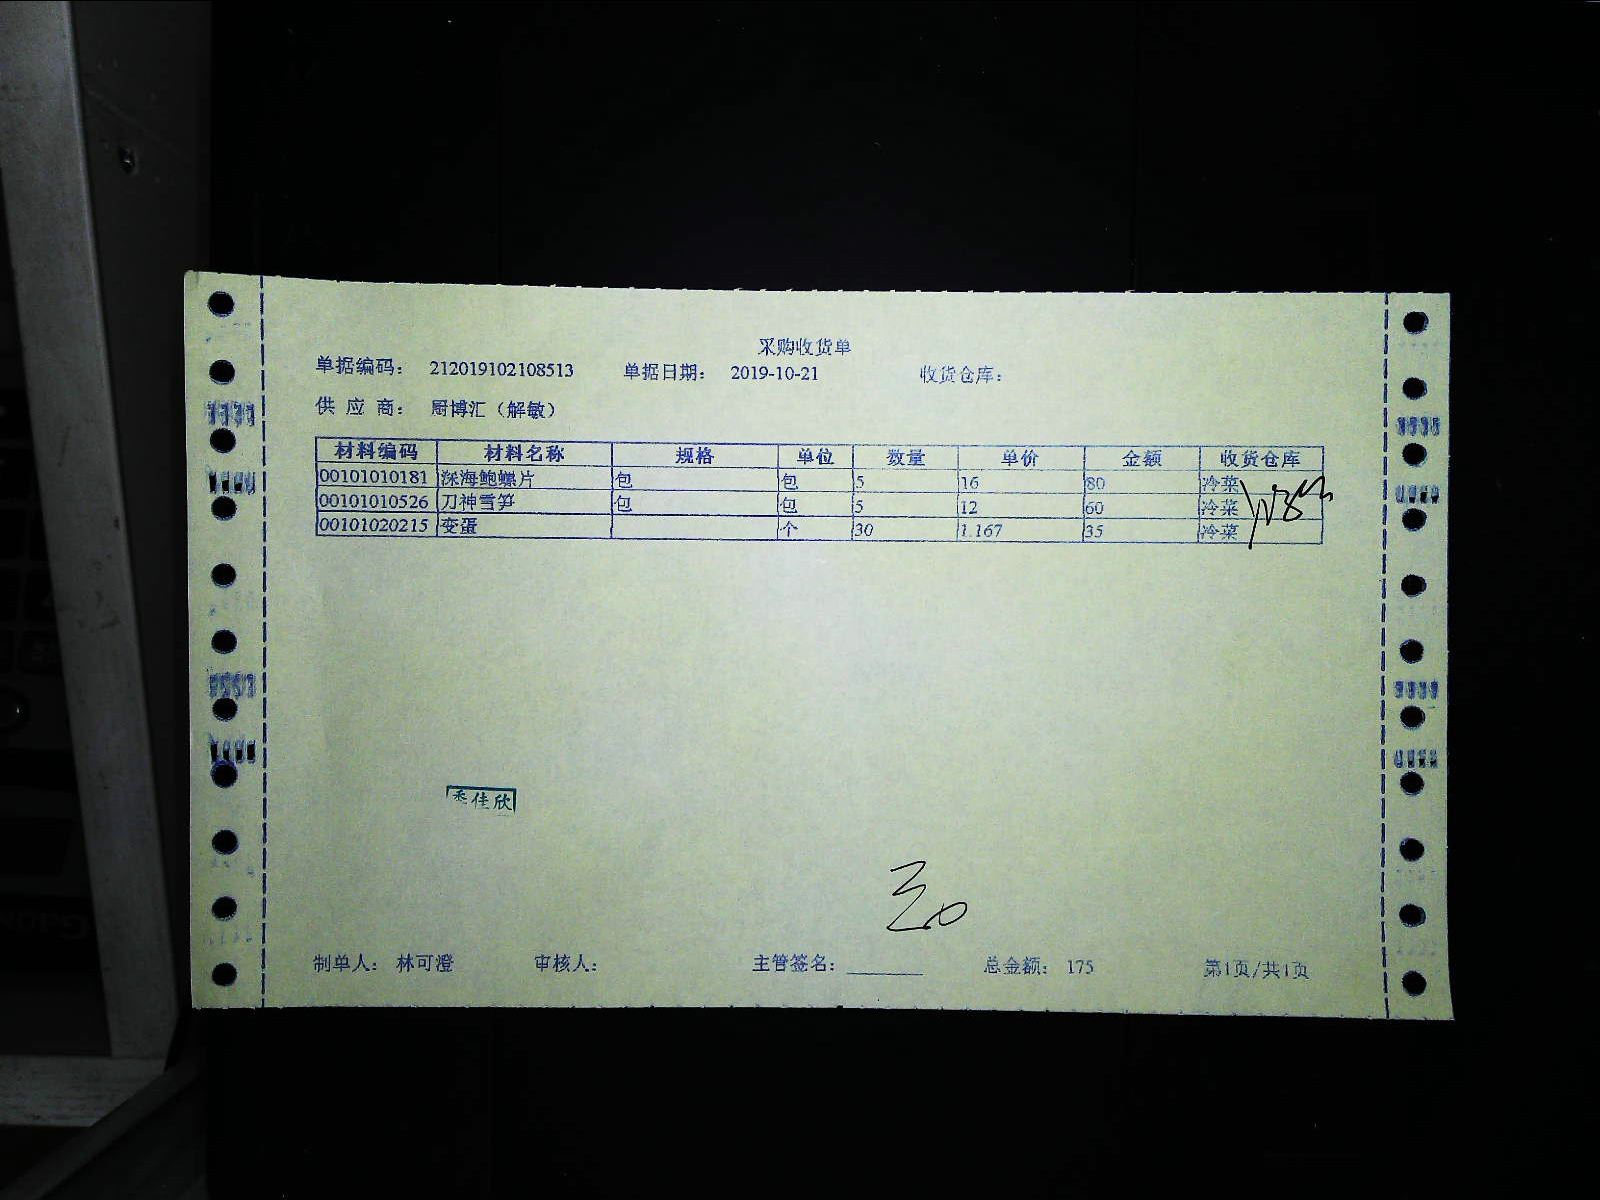 采购收货单
单据编码： 212019102108513 单据日期： 2019-10-21 收货仓库：
供 应 商： 厨博汇（解敏）
材料编码 材料名称 规格 单位 数量 单价 金额 收货仓库
00101010181 深海鲍螺片 包 包 5 16 80 冷菜
00101010526 刀神雪笋 包 包 5 12 60 冷菜
00101020215 变蛋 个 30 1.167 35 冷菜
佳欣
制单人： 林可澄 审核人： 主管签名： 总金额： 175 第1页/共1页